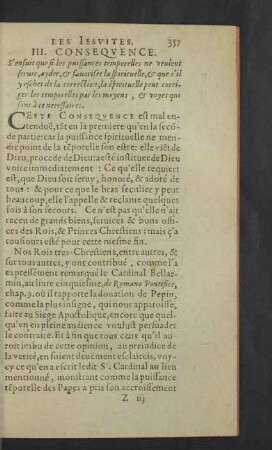 LES IESVITES. 357
III. CONSEQVENCE.
S'ensuit que si les puissances temporelles ne veulent
seruir, ayder, & fauoriser la spirituelle, & que s'il
y eschet de la correction, la spirituelle peut corri-
ger les temporelles par les moyens, & voyes qui
sont à ce necessaires.
CESTE CONSEQVENCE est mal en-
tenduë, tãt en la premiere qu'en la seco̅-
de partie: car la puissance spirituelle ne men-
die point de la te̅porelle son estre: elle viẽt de
Dieu, procede de Dieu: a esté institute de Dieu
voire immediatement: Ce qu'elle requiert
est, que Dieu soit seruy, honoré, & adoré de
tous: & pour ce que le bras seculier y peut
beaucoup, elle l'appelle & reclame quelques
fois à son secours. Ce n'est pas qu'elle n'ait
receu de grands biens, seruices & bons offi-
ces des Rois, & Princes Chrestiens; mais ç'a
tousiours esté pour ceste mesme fin.
Nos Rois tres-Chrestiens, entre autres, &
sur tous autres, y ont contribué, comme l'a
expressément remarqué le Cardinal Bellar-
min, au liure cinquiesme, de Romano Pontifice,
chap. 9. où il rapporte la donation de Pepin,
comme la plus insigne, qui nous apparoisse,
faite au Siege Apostolique, encore que quel-
qu'vn en pleine audience voulust persuader
le contraire. Et à fin que tous ceux qu'il au-
roit imbu de cette opinion, au preiudice de
la verité, en soient deuëment esclaircis, voy-
cy ce qu'en a escrit ledit Sr. Cardinal au lieu
mentionné, monstrant comme la puissance
te̅porelle des Papes a pris son accroissement
Z iij